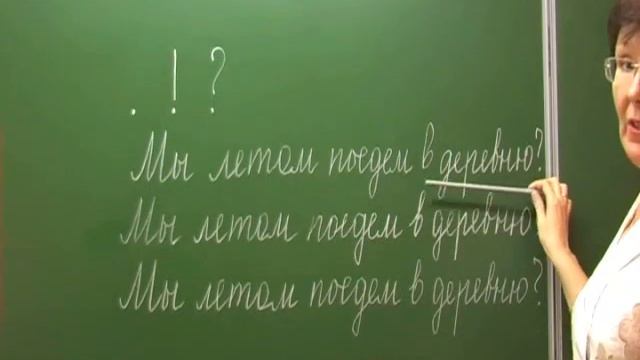 . ! ?
Мы летом поедем в деревню?
Мы летом поедем в деревню
Мы летом поедем в деревню?